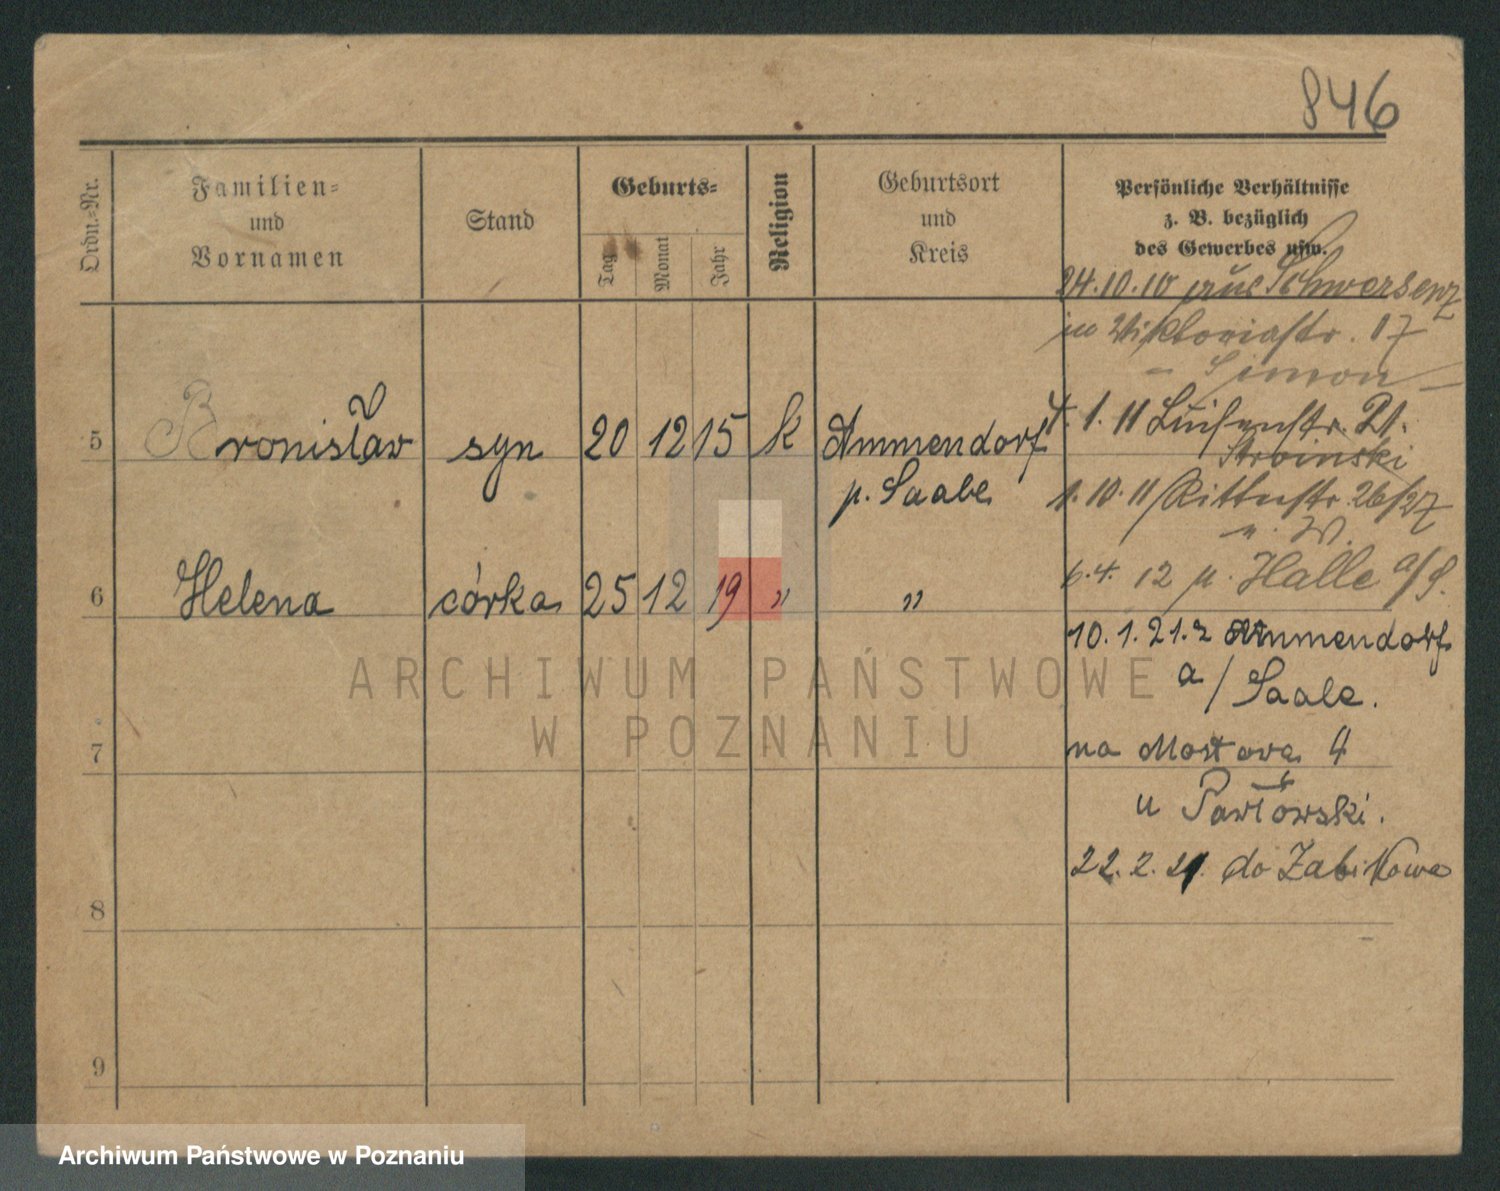 846
Ordn.-Nr.
Familien-
und
Vornamen
Stand
Geburts-
Tag
Monat
Jahr
Religion
Geburtsort
und
Kreis
Persönliche Verhältnisse
z. B. bezüglich
des Gewerbes usw.
24.10.10 aus Schwersenz
in Viktoriastr. 17
- Simon -
5 Bronisław syn 20 12 15 k Ammendorf
p. Saabe
1. 11 Luisenstr. 21.
Stroinski
1. 10. 11 Ritterstr. 26/27
n. W.
6 Helena córka 25 12 19 " "
6.4. 12 n. Halle a/S.
10. 1. 21. z Ammendorf
a/Saale.
7
na Mostową 4
u Pawłowski.
22. 2. 21. do Żabikowa
8
9
ARCHIWUM PAŃSTWOWE
W POZNANIU
Archiwum Państwowe w Poznaniu